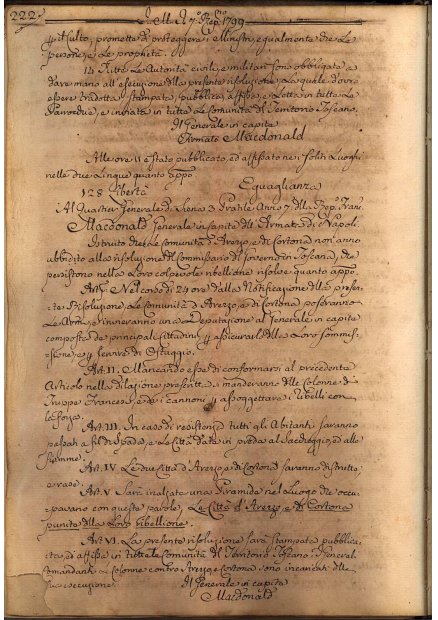 222
A 7 Rep. 1799
il Culto, promette di proteggere i Ministri egualmente che Le
persone, e Le proprietà.
14 Tutte Le Autorità civili, e militari sono obbligate a
dare mano all'esecuzione della presente risoluzione, La quale dovrà
essere tradotta, stampata, pubblica, affissa, e Letta in tutte Le
Parrocchie, e inviata in tutte Le Comunità del Territorio Toscano.
Il Generale in capite
Firmato Macdonald
Alle ore 11 è stato pubblicato, ed affissato nei soliti Luoghi
nelle due Lingue quanto appo
128 Libertà Eguaglianza
Al Quartier Generale di Siena 3 Pratile Anno 7 della Rep. Franc
Macdonald Generale in capite dell'Armata di Napoli.
Istruito che La Comunità d'Arezzo, e di Cortona non anno
ubbidito alla risoluzione del Commissario di Governo in Toscana, che
persistono nella Loro colpevole ribellione risolve quanto appo.
Art. I. Nel corso di 24 ore dalla Notificazione della presen-
te Risoluzione Le Comunità d'Arezzo, e di Cortona poseranno
Le Armi, e invieranno una Deputazione al Generale in capite
composta de principali Cittadini per assicurarlo della Loro sommis-
sione, e per servire di Ostaggio.
Art. II. Mancando esse di conformarsi al precedente
Articolo nella dilazione presente si manderanno delle Colonne di
Truppe Francesi, e de i cannoni per assoggettare i ribelli con
La forza.
Art. III. In caso di resistenza tutti gli Abitanti saranno
passati a fil di spada, e Le Città date in preda al Saccheggio, ed alle
fiamme.
Art. IV. Le due Città d'Arezzo, e di Cortona saranno distrutte,
e rase.
Art. V. Sarà inalzata una Piramide nel Luogo che occu-
pavano con queste parole, La Città d'Arezzo, e di Cortona
punite della Loro ribellione.
Art. VI. La presente risoluzione sarà stampata, pubblica-
ta, ed affissa in tutte Le Comunità del Territorio Toscano. I Generali
Comandanti Le Colonne contro Arezzo, e Cortona sono incaricati della
sua esecuzione.
Il Generale in capite
Macdonald